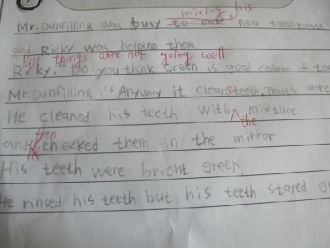 mixing his
Mr.Dunfilling was busy to make new toothpaste
and Ricky was helping them
but things are not going well
Ricky:"Do you think Green is good colour
Mr.Dunfilling:"Anyway it clean teeth
He cleaned his teeth with mixture
the
then
and checked them in the mirror
His teeth were bright green
He rinsed his teeth but his teeth stayed